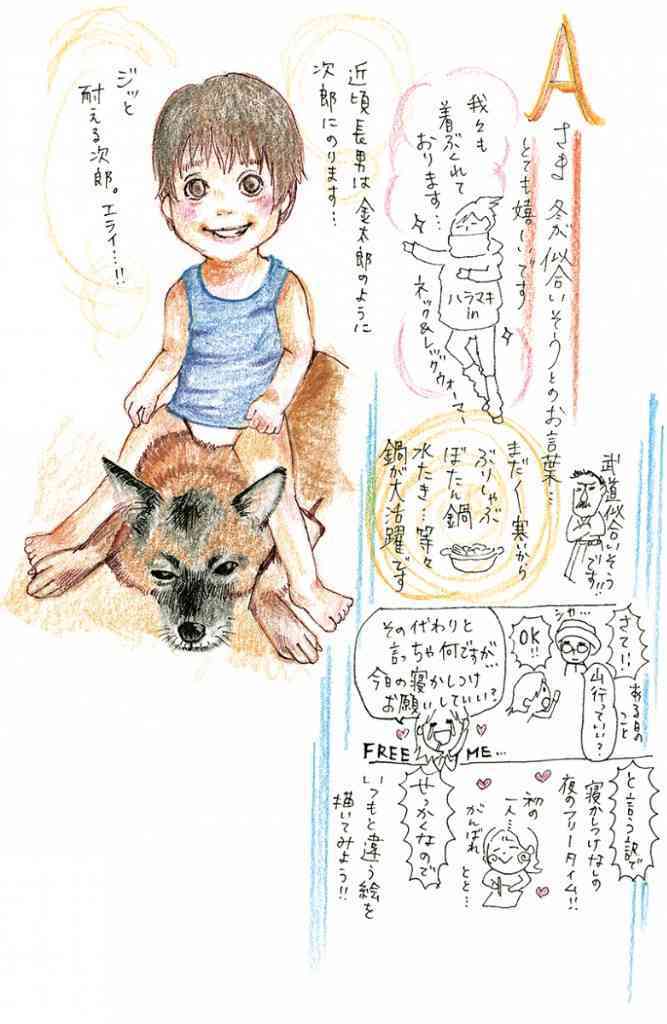 A
さま 冬が似合いそうとのお言葉…
とても嬉しいです
我々も
着ぶくれて
おります…
ハラマキ
in
ネック&レッグウォーマー
武道似合いそう
です!!
まだまだ寒いから
ぶりしゃぶ
ぼたん鍋
水たき…等々
鍋が大活躍です
近頃長男は金太郎のように
次郎にのります…
ジッと
耐える次郎。エライ…!!
さて!!
ある日の
こと
シャ…
山行っていい?
OK!!
その代わりと
言っちゃ何ですが…
今日の寝かしつけ
お願いしていい?
FREE ME…
と言う訳で
寝かしつけなしの
夜のフリータイム!!
初の
一人…ル
がんばれ
とと…
せっかくなので
いつもと違う絵を
描いてみよう!!